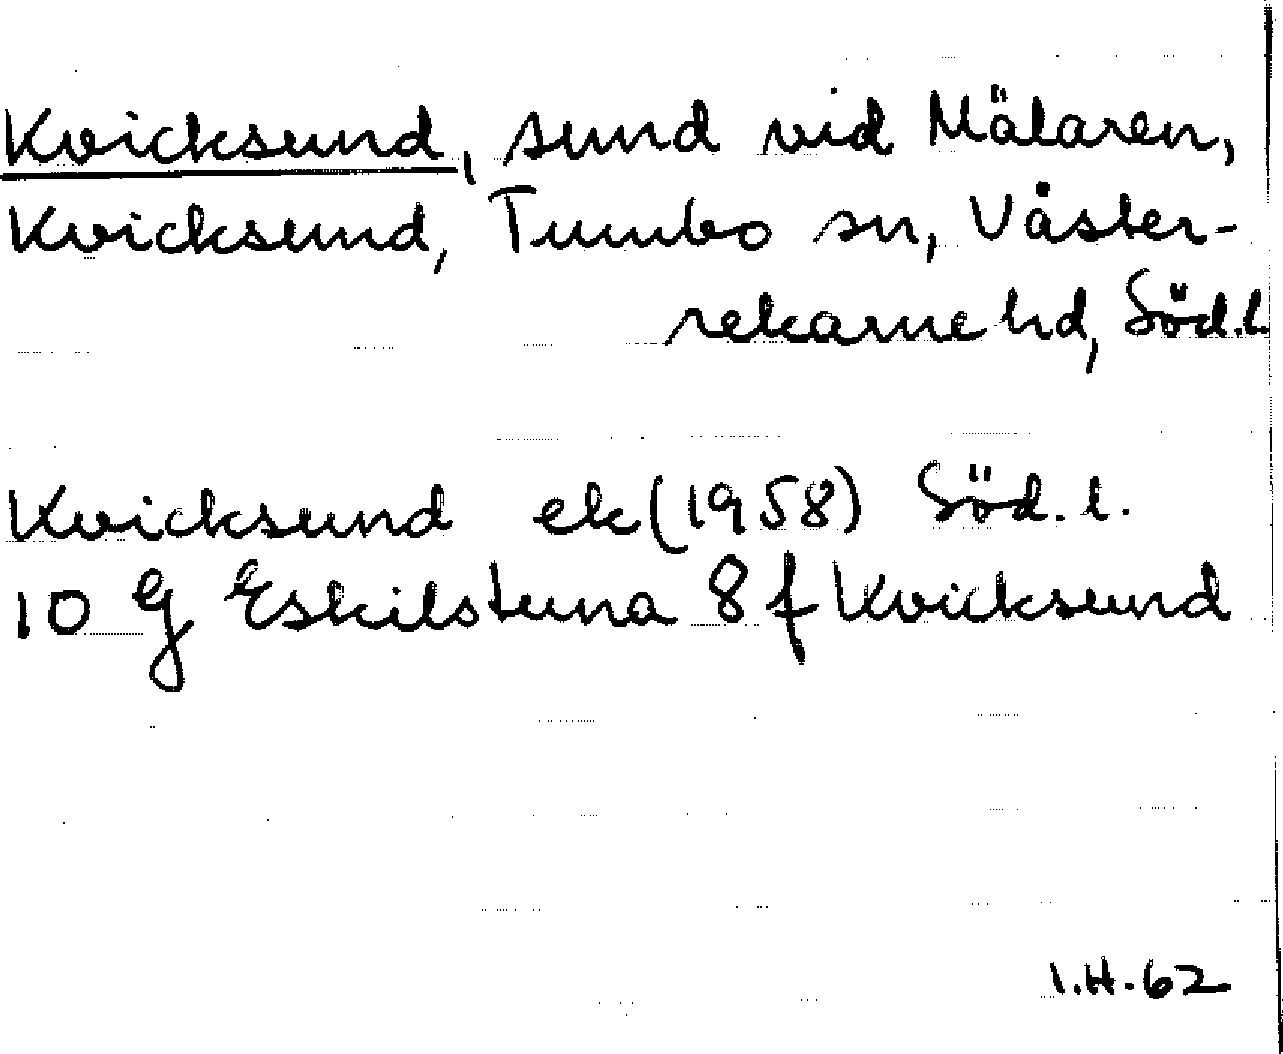 Kvicksund, sund vid Mälaren,
Kvicksund, Tumbo sn, Väster-
rekarne hd, Söd.l.
Kvicksund ek (1958) Söd. l.
10 g Eskilstuna 8 f Kvicksund
I.H. 62